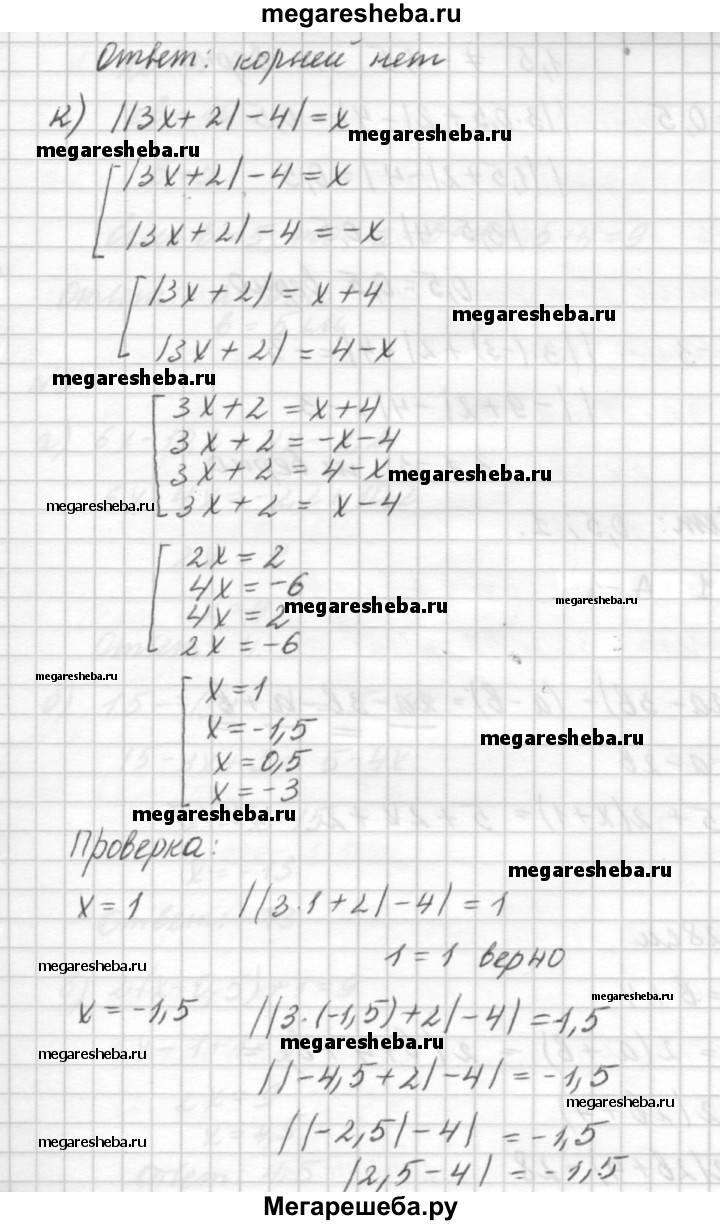 megaresheba.ru
Ответ: корней нет
к) ||3x+2|-4|=x
megaresheba.ru
megaresheba.ru
|3x+2|-4=x
|3x+2|-4=-x
|3x+2|=x+4
megaresheba.ru
|3x+2|=4-x
megaresheba.ru
3x+2=x+4
3x+2=-x-4
3x+2=4-x
megaresheba.ru
megaresheba.ru
3x+2=x-4
2x=2
4x=-6
megaresheba.ru
megaresheba.ru
4x=2
2x=-6
megaresheba.ru
x=1
x=-1,5
megaresheba.ru
x=0,5
x=-3
megaresheba.ru
Проверка:
megaresheba.ru
x=1 ||3·1+2|-4|=1
1=1 верно
megaresheba.ru
megaresheba.ru
x=-1,5 ||3·(-1,5)+2|-4|=1,5
megaresheba.ru
megaresheba.ru
||-4,5+2|-4|=-1,5
megaresheba.ru
||-2,5|-4|=-1,5
megaresheba.ru
|2,5-4|=-1,5
Мегарешеба.ру